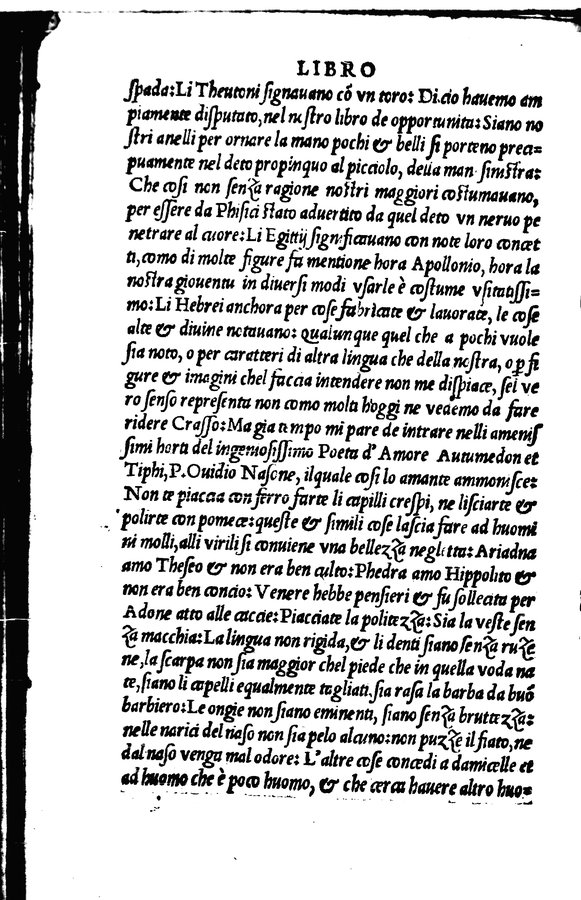 LIBRO
ſpada: Li Theutoni ſignauano cõ vn toro: Di cio hauemo am
piamente diſputato, nel nr̃ſtro libro de opportunita: Siano no
ſtri anelli per ornare la mano pochi & belli ſi porteno preci=
puamente nel deto propinquo al picciolo, della man ſiniſtra:
Che coſi non ſenza ragione noſtri maggiori coſtumauano,
per eſſere da Phiſici ſtato aduertito da quel deto vn neruo pe
netrare al cuore: Li Egittij ſignificauano con note loro concet
ti, como di molte figure fa mentione hora Apollonio, hora la
noſtra giouentu in diuerſi modi vſarle è coſtume vſitatiſſi=
mo: Li Hebrei anchora per coſe fabricate & lauorate, le coſe
alte & diuine notauano: qualunque quel che a pochi vuole
ſia noto, o per caratteri di altra lingua che della noſtra, o ꝑ fi
gure & imagini chel faccia intendere non me diſpiace, ſel ve
ro ſenſo repreſenta non como molti hoggi ne vedemo da fare
ridere Craſſo: Ma gia tempo mi pare de intrare nelli ameniſ
ſimi horti del ingenioſiſſimo Poeta d'Amore Autumedon et
Tiphi, P. Ouidio Naſone, ilquale coſi lo amante ammoniſce:
Non te piaccia con ferro farte li capilli creſpi, ne liſciarte &
polirte con pomece: queſte & ſimili coſe laſcia fare ad huomi
ni molli, alli virili ſi conuiene vna bellezza negletta: Ariadna
amo Theſeo & non era ben culto: Phedra amo Hippolito &
non era ben concio: Venere hebbe penſieri & fu ſollecita per
Adone atto alle caccie: Piacciate la politezza: Sia la veſte ſen
za macchia: La lingua non rigida, & li denti ſiano ſenza ruze
ne, la ſcarpa non ſia maggior chel piede che in quella voda na
te, ſiano li capelli equalmente tagliati, ſia raſa la barba da buõ
barbiero: Le ongie non ſiano eminenti, ſiano ſenza bruttezza:
nelle narici del naſo non ſia pelo alcuno: non puzze il fiato, ne
dal naſo venga mal odore: L'altre coſe concedi a damicelle et
ad huomo che è poco huomo, & che cerca hauere altro huo=